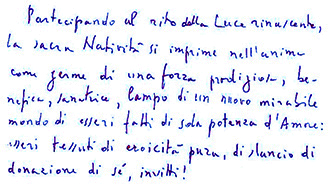 Partecipando al rito della Luce rinascente,
la sacra Natività si imprime nell'anima
come germe di una forza prodigiosa, be-
nefica, sanatrice, lampo di un nuovo mirabile
mondo di esseri fatti di sola potenza d'Amore:
esseri tessuti di eroicità pura, di slancio di
donazione di sé, invitti!